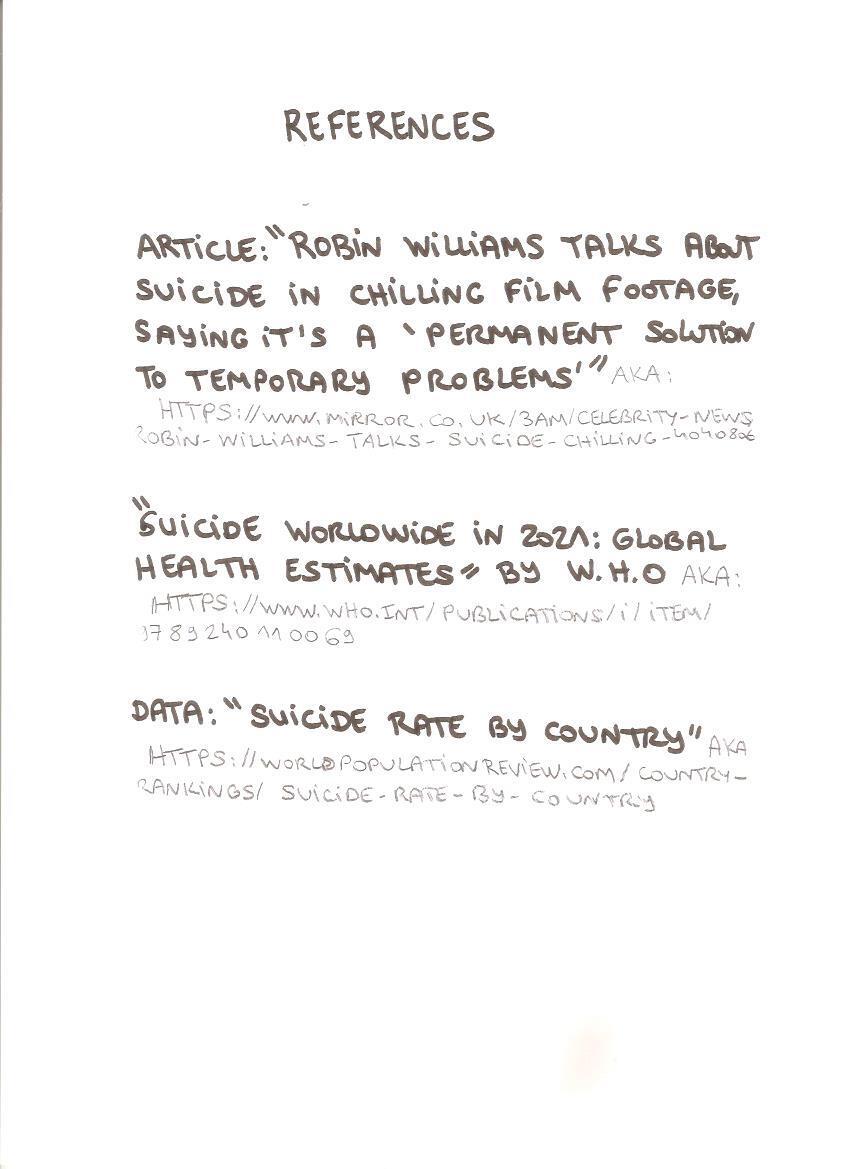 REFERENCES
ARTICLE: "ROBIN WILLIAMS TALKS ABOUT
SUICIDE IN CHILLING FILM FOOTAGE,
SAYING IT'S A 'PERMANENT SOLUTION
TO TEMPORARY PROBLEMS'" AKA:
HTTPS://WWW.MIRROR.CO.UK/3AM/CELEBRITY-NEWS
ROBIN-WILLIAMS-TALKS-SUICIDE-CHILLING-4040806
"SUICIDE WORLDWIDE IN 2021: GLOBAL
HEALTH ESTIMATES" BY W.H.O AKA:
HTTPS://WWW.WHO.INT/PUBLICATIONS/I/ITEM/
9789240110069
DATA: "SUICIDE RATE BY COUNTRY" AKA
HTTPS://WORLDPOPULATIONREVIEW.COM/COUNTRY-
RANKINGS/SUICIDE-RATE-BY-COUNTRY